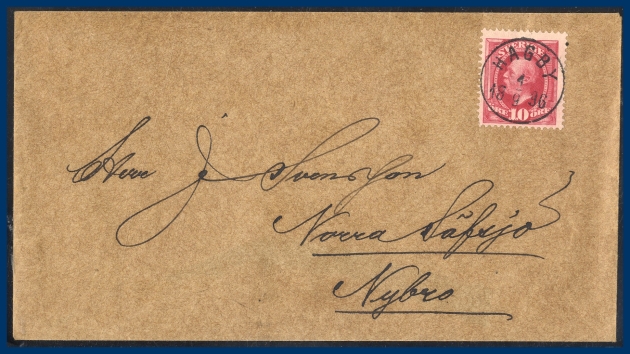 HAGBY
18 6 96
10
ÖRE
Herr J Svensson
Norra Säfsjö
Nybro